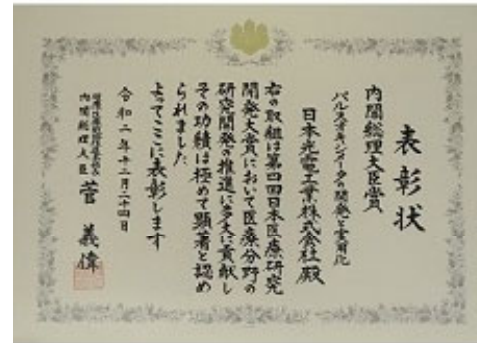 表彰状
内閣総理大臣賞
パルスオキシメータの開発と実用化
日本光電工業株式会社 殿
右の取組は第四回日本医療研究
開発大賞において医療分野の
研究開発の推進に多大に貢献し
その功績は極めて顕著と認め
られました
よってここに表彰します
令和二年十二月二十四日
内閣総理大臣 菅 義偉